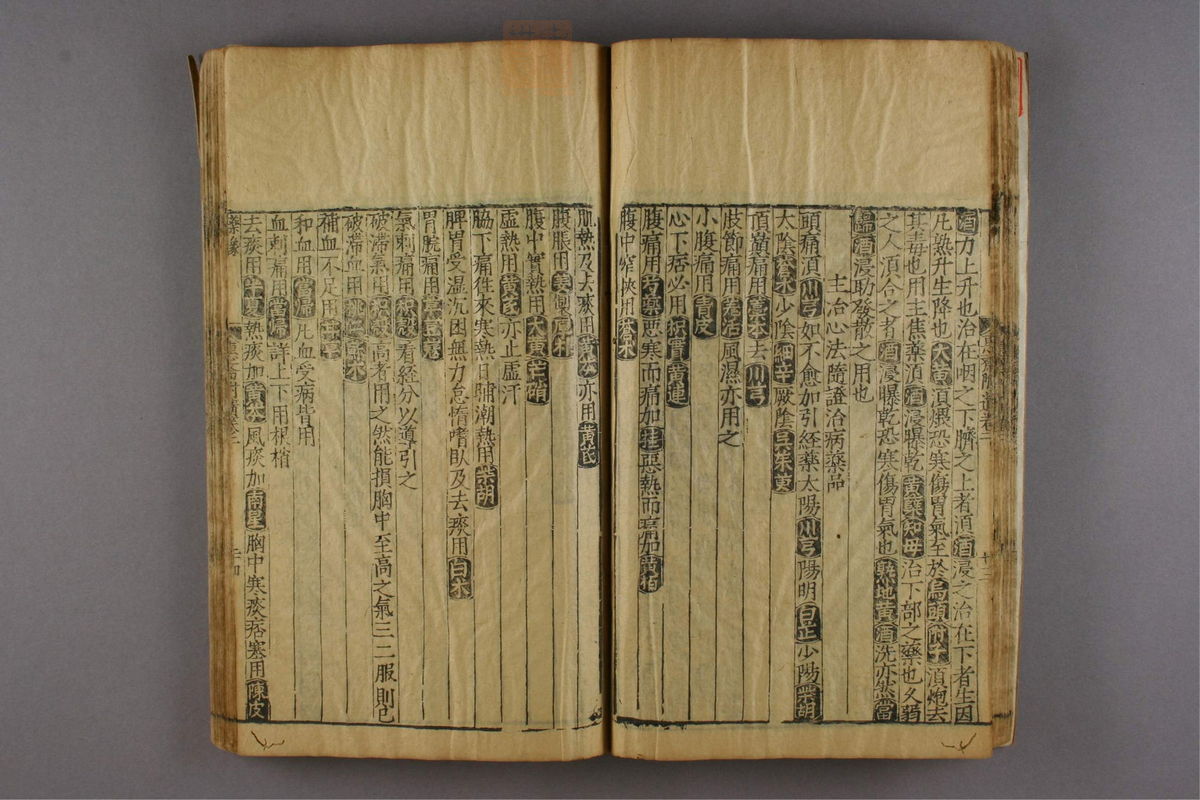 酒力上升也治在咽之下臍之上者湏酒浸之治在下者生因
凢熟升生降也大黄湏煨恐寒傷胃氣至於烏頭附子湏炮去
其毒也用上焦藥湏酒浸曝乾黄蘗知母治下部之藥也久弱
之人湏合之者酒浸曝乾恐寒傷胃氣也熟地黄酒洗亦然當
歸酒浸助發散之用也
主治心法隨證治病藥品
頭痛湏川芎如不愈加引経藥太陽川芎陽明白芷少陽柴胡
太陰蒼术少陰細辛厥陰呉茱萸
頂巔痛用藁本去川芎
肢節痛用羌活風濕亦用之
小腹痛用青皮
心下痞必用枳實黄連
腹痛用芍藥悪寒而痛加桂惡熱而痛加黄栢
腹中窄狹用蒼术
肌熱及去痰用黄芩亦用黄芪
腹脹用姜製厚朴
腹中實熱用大黄芒硝
虛熱用黄芪亦止虛汗
脇下痛往來寒熱日晡潮熱用柴胡
脾胃受濕沉困無力怠惰嗜卧及去痰用白术
胃脘痛用草豆蔲
氣刺痛用枳殼看經分以導引之
破滯氣用枳殼高者用之然能損胸中至高之氣三二服則已
破滯血用桃仁蘇木
補血不足用甘草
和血用當歸凡血受病皆用
血刺痛用當歸詳上下用根梢
去痰用半夏熱痰加黄芩風痰加南星胸中寒痰痞塞用陳皮